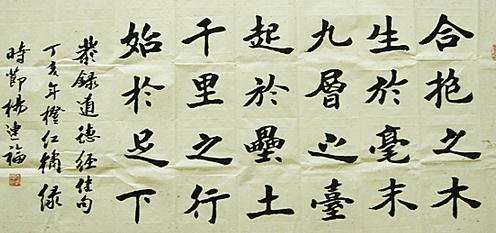 合抱之木
生於毫末
九層之臺
起於壘土
千里之行
始於足下
恭錄道德經佳句
丁亥年橙红橘绿
時節楊建福